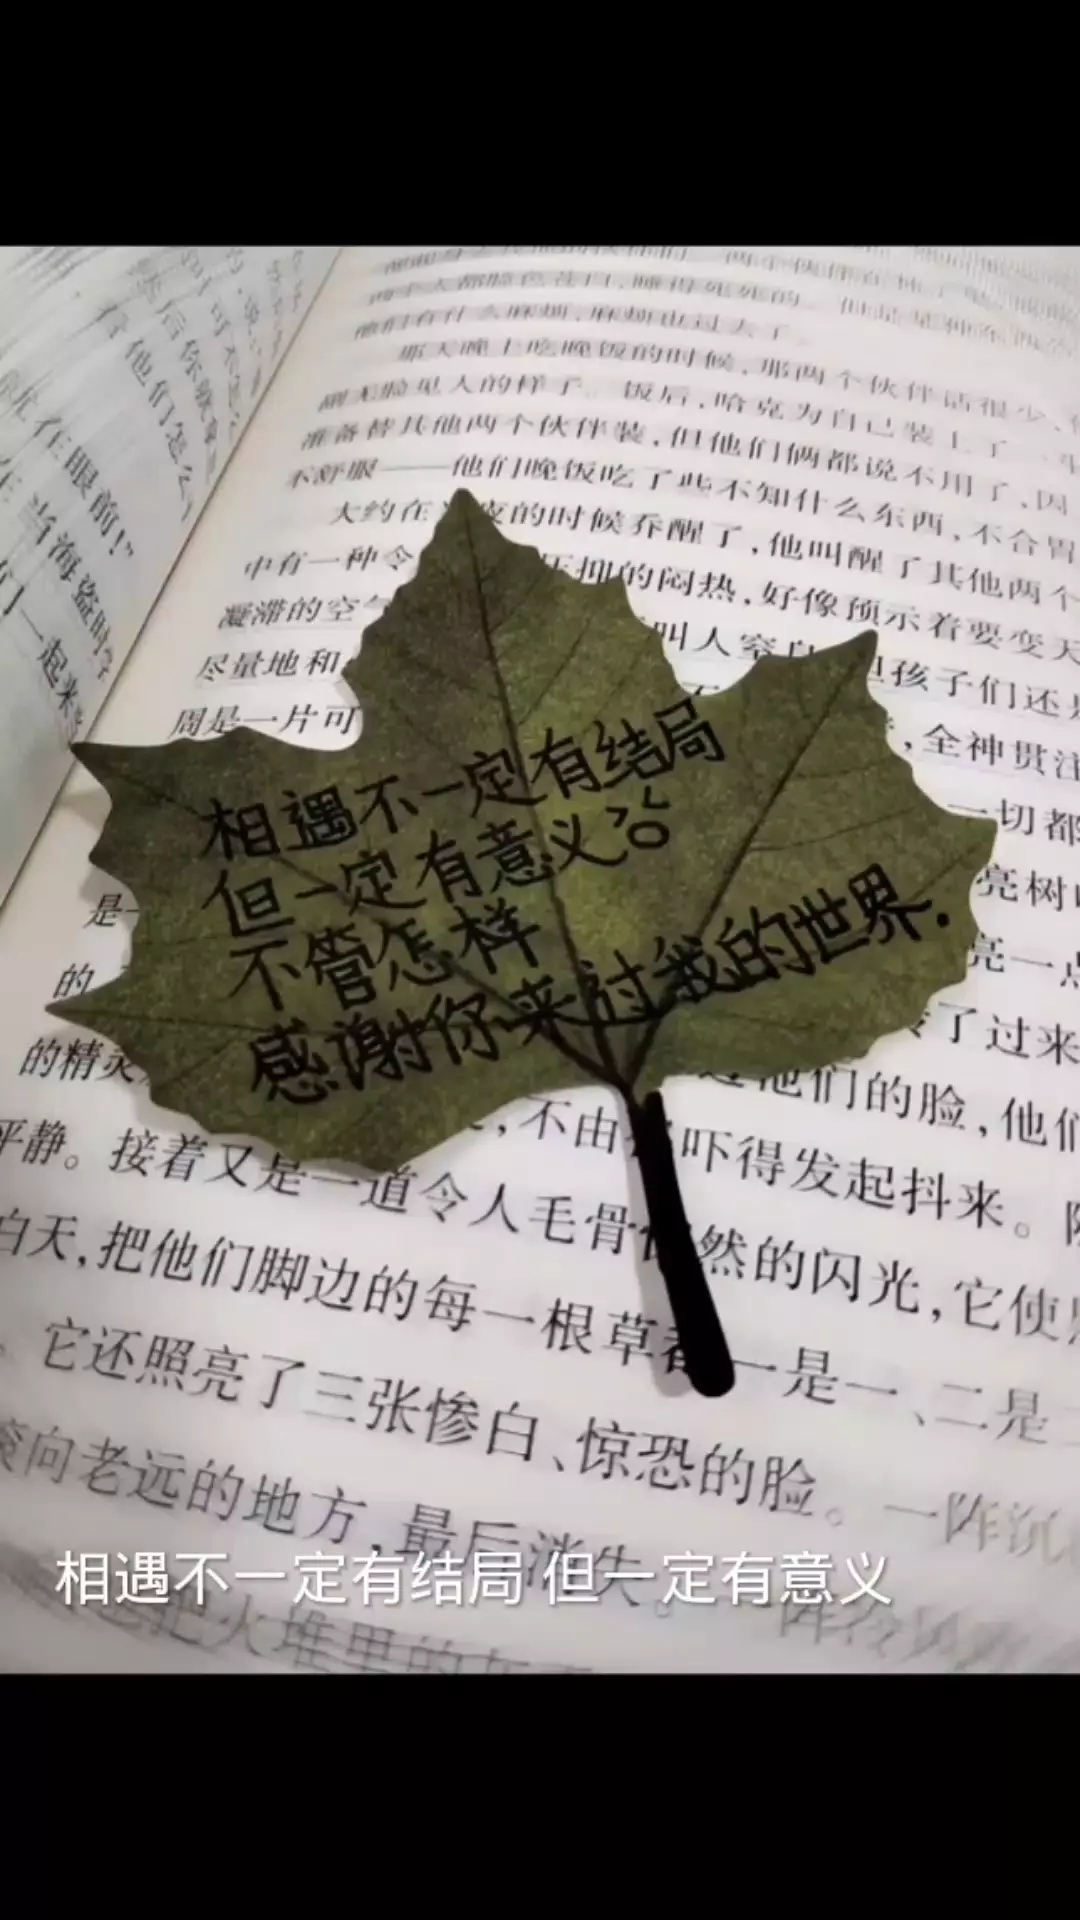 就在眼前！”
生当海盗时学
们一起来
后你就拿
他们怎么
两个人都脸色苍白，睡得死死的。
他们有什么麻烦，麻烦也过去了。
那天晚上吃晚饭的时候，那两个伙伴话很少，
副无脸见人的样子。饭后，哈克为自己装上了一斗
准备替其他两个伙伴装，但他们俩都说不用了，因
不舒服——他们晚饭吃了些不知什么东西，不合胃
大约在 夜的时候乔醒了，他叫醒了其他两个
中有一种令 压抑的闷热，好像预示着要变天
凝滞的空气 叫人窒 但孩子们还是
尽量地和
周是一片可 ，全神贯注
相遇不一定有结局
但一定有意义
不管怎样
感谢你来过我的世界.
一切都
是一 亮树
的 亮一点
的精灵 转了过来
过他们的脸，他们
平静。接着又是一道令人毛骨 然的闪光，它使
，不由 吓得发起抖来。
白天，把他们脚边的每一根草都一是一、二是二
。它还照亮了三张惨白、惊恐的脸。一阵沉
滚向老远的地方，最后消失。一阵冷
把火堆里的灰
相遇不一定有结局 但一定有意义